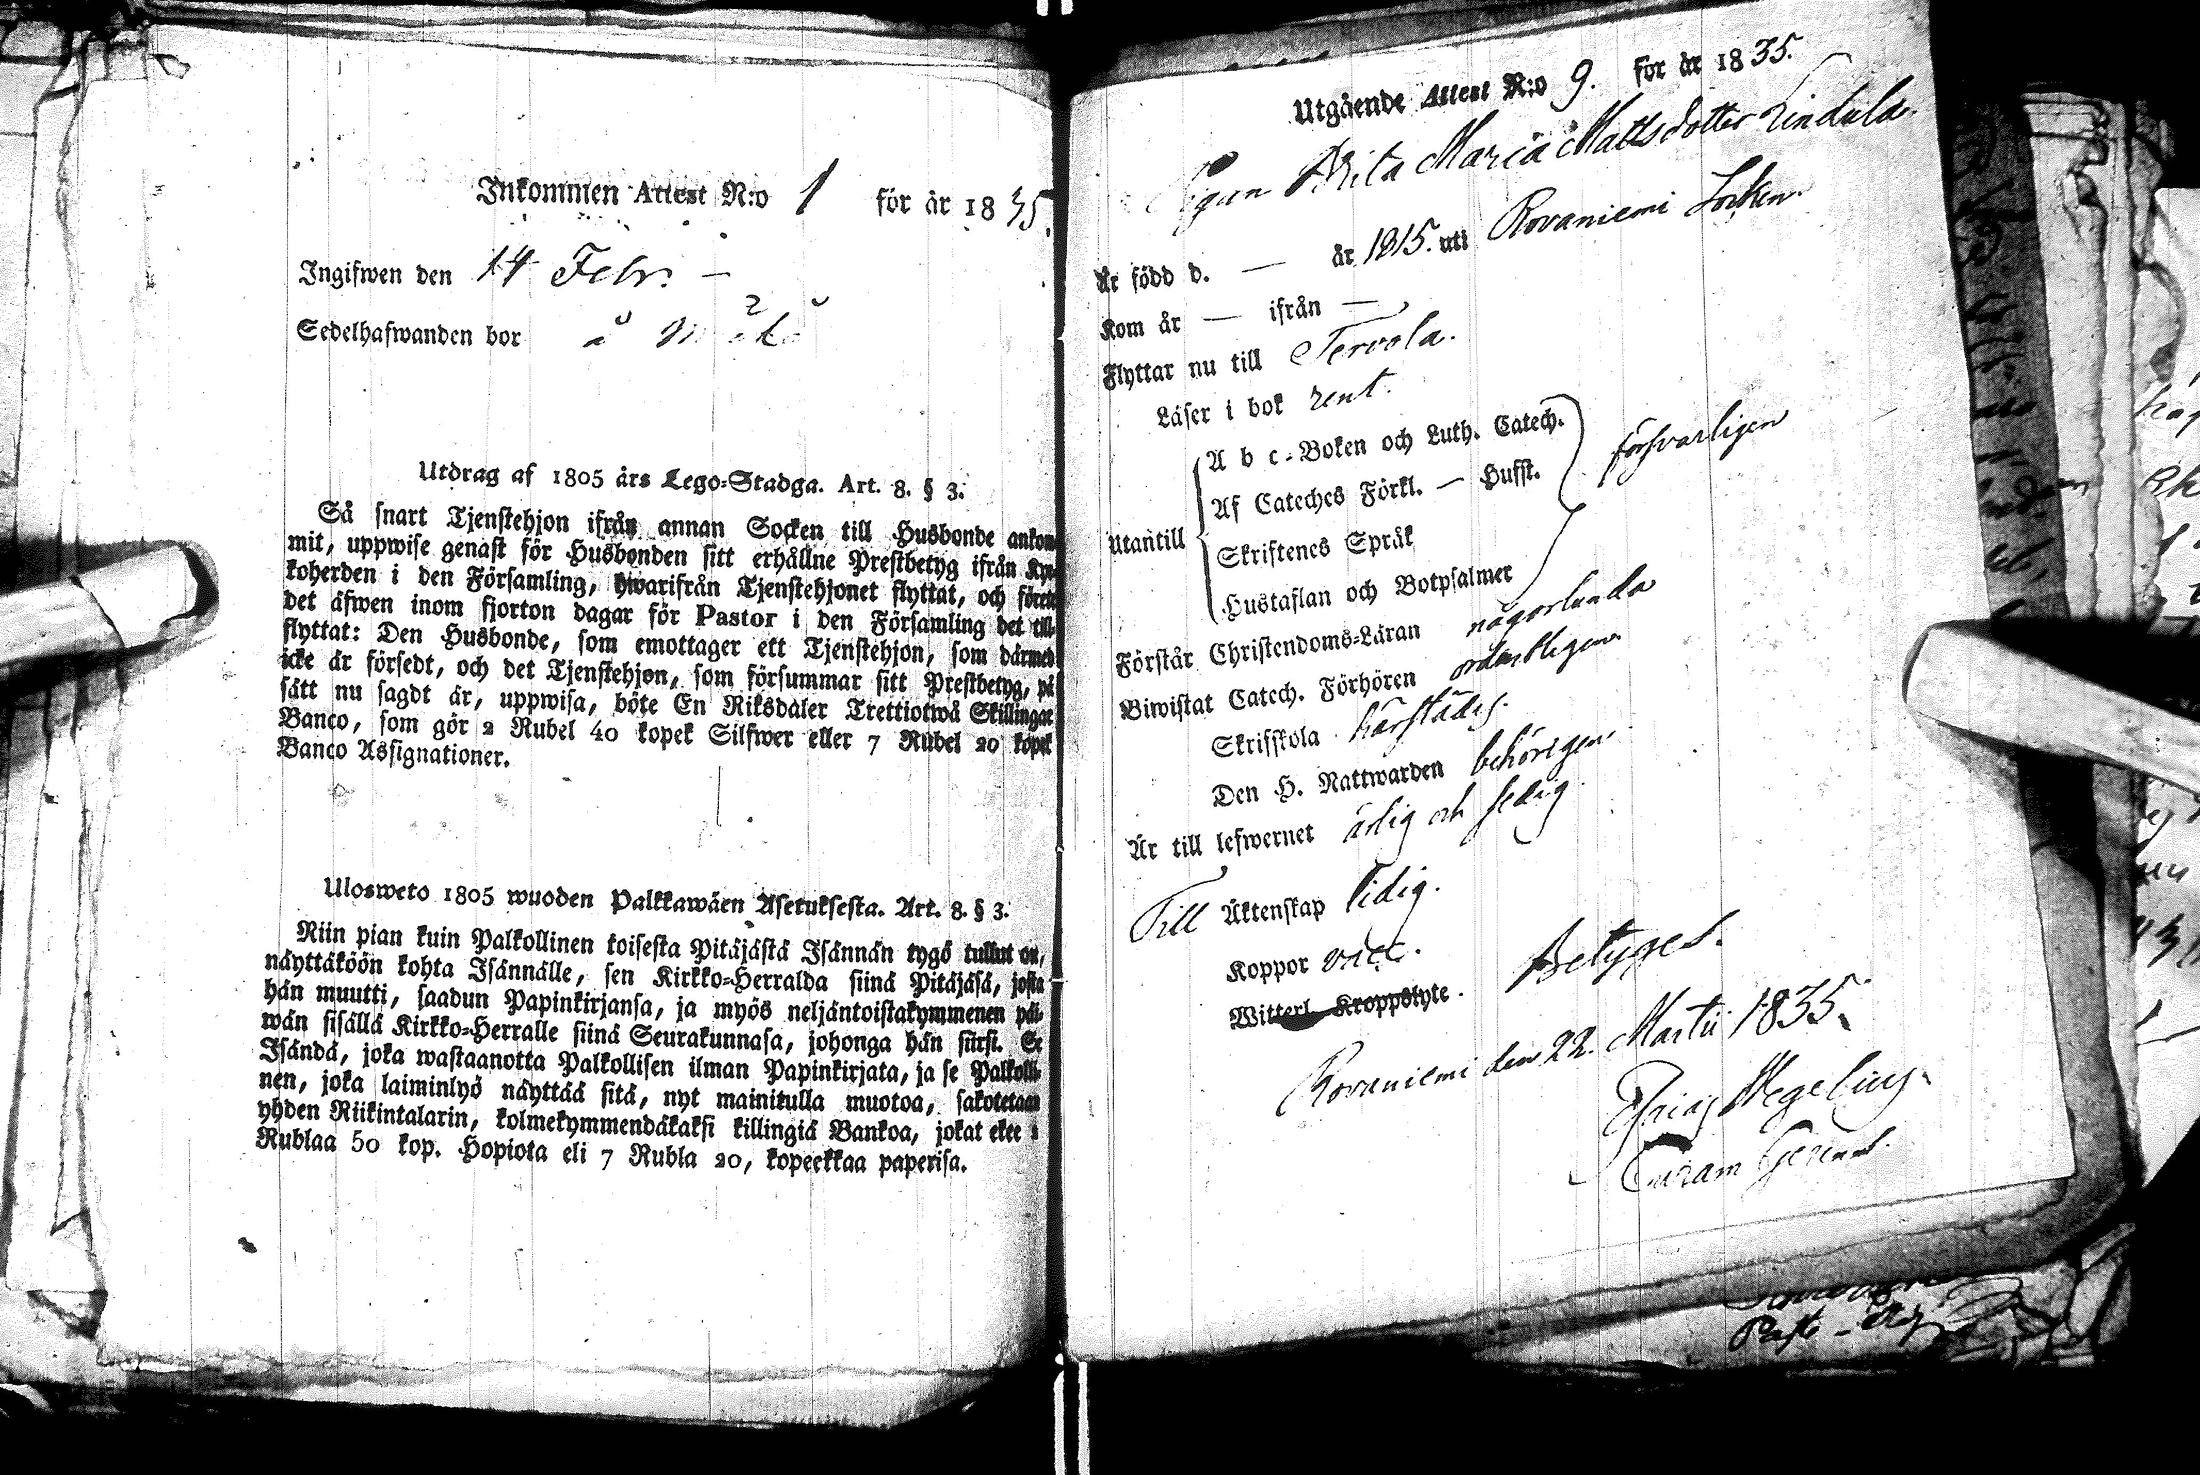 Inkommen Attest N:o 1 för år 1835.
Ingifwen den 14 Febr. —
Sedelhafwanden bor å
Utdrag af 1805 års Lego-Stadga. Art. 8. § 3.
Så snart Tjenstehjon ifrån annan Socken till Husbonde ankom-
mit, uppwise genast för Husbonden sitt erhållne Prestbetyg ifrån Kyr-
koherden i den Församling, hwarifrån Tjenstehjonet flyttat, och förete
det äfwen inom fjorton dagar för Pastor i den Församling det till-
flyttat: Den Husbonde, som emottager ett Tjenstehjon, som därmed
icke är försedt, och det Tjenstehjon, som försummar sitt Prestbetyg, på
sätt nu sagdt är, uppwisa, böte En Riksdaler Trettiotwå Skillingar
Banco, som gör 2 Rubel 40 kopek Silfwer eller 7 Rubel 20 kopek
Banco Assignationer.
Ulosweto 1805 wuoden Palkkawäen Asetuksesta. Art. 8. § 3.
Niin pian kuin Palkollinen toisesta Pitäjästä Isännän tygö tullut on,
näyttäköön kohta Isännälle, sen Kirkko-Herralda siinä Pitäjäsä, josta
hän muutti, saadun Papinkirjansa, ja myös neljäntoistakymmenen päi-
wän sisällä Kirkko-Herralle siinä Seurakunnasa, johonga hän siirsi. Se
Isändä, joka wastaanotta Palkollisen ilman Papinkirjata, ja se Palkolli-
nen, joka laiminlyö näyttää sitä, nyt mainitulla muotoa, sakotetaan
yhden Riikintalarin, kolmekymmendäkaksi killingiä Bankoa, jotat eket
Rublaa 50 kop. Hopiota eli 7 Rubla 20, kopeekkaa paperisa.
Utgående Attest N:o 9. för år 1835.
Pigan Brita Maria Mattsdotter Lindula.
Är född d. — år 1815. uti Rovaniemi Socken.
Kom år — ifrån —
Flyttar nu till Tervola.
Läser i bok rent.
Utantill
A b c-Boken och Luth. Catech.
Af Cateches Förkl. — Husst.
Skriftenes Språk
Hustaflan och Botpsalmer
försvarligen
Förstår Christendoms-Läran någorlunda
Biwistat Catech. Förhören ordentligen
Skriftskola härstädes.
Den H. Nattwarden behörigen
Är till lefwernet ärlig och sedig
Till Äktenskap ledig.
Koppor vacc.
Witterl. Kroppslyte. Betyges.
Rovaniemi den 22. Martii 1835.